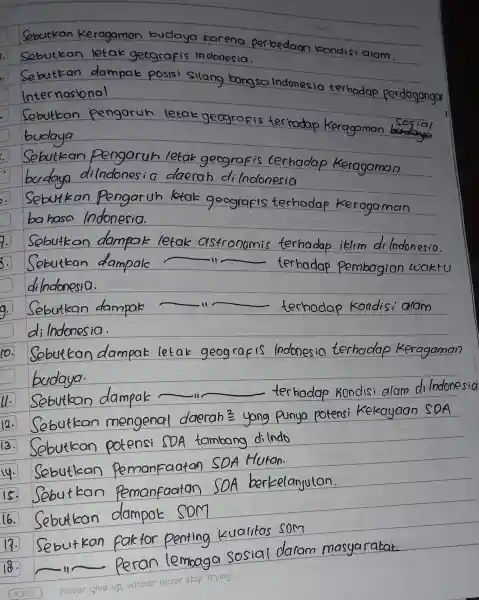 Sebutkan keragaman budaya karena perbedaan kondisi alam.
Sebutkan letak geografis Indonesia.
Sebutkan dampak posisi silang bangsa Indonesia terhadap perdagangan
Internasional
Sebutkan pengaruh letak geografis terhadap Keragaman sosial
budaya
Sebutkan Pengaruh letak geografis terhadap Keragaman
berdaya diIndonesia daerah diIndonesia
Sebutkan Pengaruh letak geografis terhadap Keragaman
bahasa Indonesia.
7. Sebutkan dampak letak astronomis terhadap iklim di Indonesia.
8. Sebutkan dampak —"— terhadap Pembagian waktu
diIndonesia.
9. Sebutkan dampak —"— terhadap kondisi alam
di Indonesia.
10. Sebutkan dampak letak geografis Indonesia terhadap Keragaman
budaya.
11. Sebutkan dampak —"— terhadap kondisi alam di Indonesia
12. Sebutkan mengenal daerah² yang punya potensi Kekayaan SDA
13. Sebutkan potensi SDA tambang di Indo
14. Sebutkan Pemanfaatan SDA Hutan.
15. Sebutkan Pemanfaatan SDA berkelanjutan.
16. Sebutkan dampak SDM
17. Sebutkan faktor penting kualitas SDM
18. —"— Peran lembaga sosial dalam masyarakat
Never give up, winner never stop trying